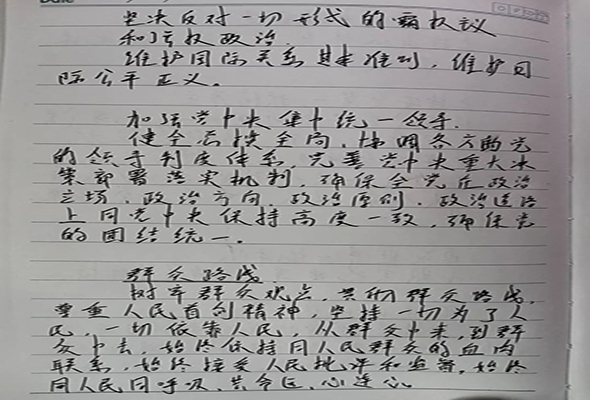 Date
坚决反对一切形式的霸权主义
和强权政治.
维护国际关系基本准则,维护国
际公平正义。
加强党中央集中统一领导.
健全总揽全局,协调各方的党
的领导制度体系,完善党中央重大决
策部署落实机制,确保全党在政治
立场,政治方向,政治原则,政治道路
上同党中央保持高度一致,确保党
的团结统一.
群众路线
树牢群众观点,贯彻群众路线,
尊重人民首创精神,坚持一切为了人
民,一切依靠人民,从群众中来,到群
众中去,始终保持同人民群众的血肉
联系,始终接受人民批评和监督,始终
同人民同呼吸,共命运,心连心